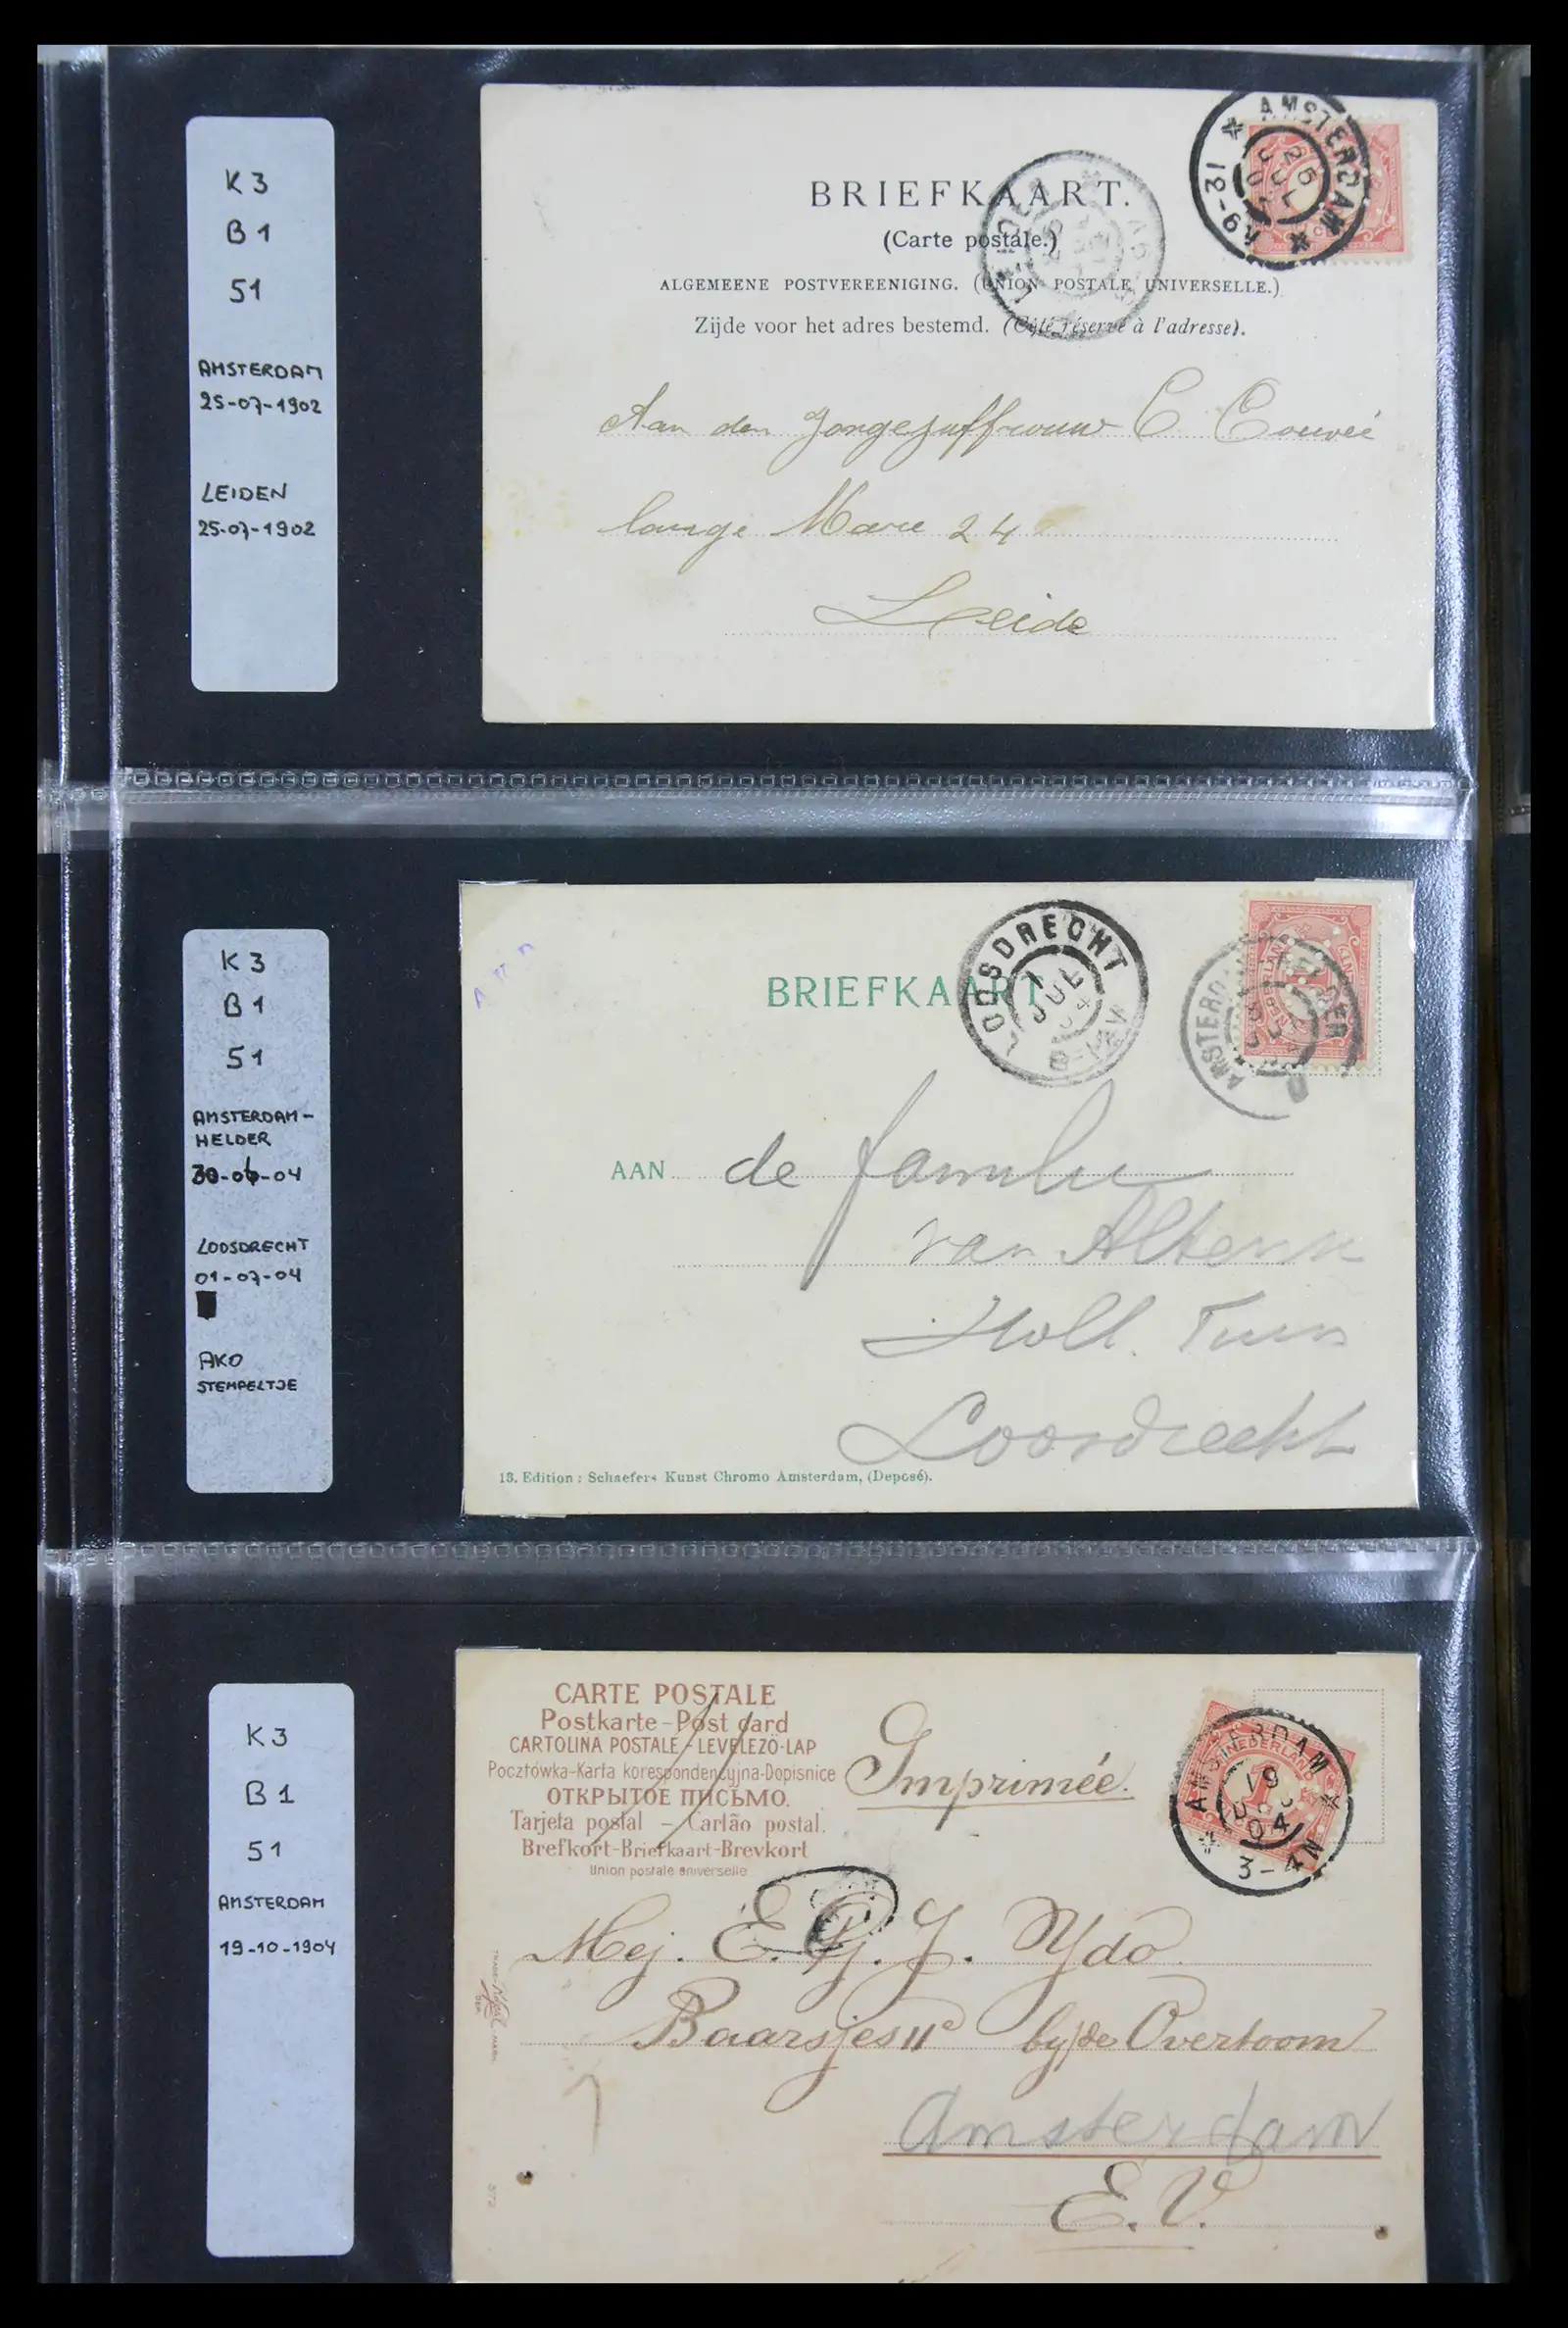 K3
B1
S1
AMSTERDAM
25-07-1902
LEIDEN
25-07-1902
BRIEFKAART.
(Carte postale.)
ALGEMEENE POSTVEREENIGING. (UNION POSTALE UNIVERSELLE.)
Zijde voor het adres bestemd. (Côté réservé à l'adresse).
AMSTERDAM
25
JUL
6-9V
Aan den Jongejuffrouw C Couvée
lange Mare 24
Leide
K3
B1
S1
AMSTERDAM-
HELDER
30-06-04
LOOSDRECHT
01-07-04
AKO
STEMPELTJE
BRIEFKAART
LOOSDRECHT
1
JUL
04
8-12V
AMSTERDAM HELDER
AAN de familie
van Altena
Holl. Tuin
Loosdrecht
13. Edition: Schaefers Kunst Chromo Amsterdam, (Deposé).
K3
B1
S1
AMSTERDAM
19-10-1904
CARTE POSTALE
Postkarte-Post card
CARTOLINA POSTALE-LEVELEZÖ-LAP
Pocztówka-Karta korespondencyjna-Dopisnice
ОТКРЫТОЕ ПИСЬМО.
Tarjeta postal - Cartão postal.
Brefkort-Briefkaart-Brevkort
Union postale universelle
Imprimée.
NEDERLAND
1
AMSTERDAM
19
04
3-4N
Mej. E. G. J. Ydo
Baarsjes 11e by/de Overtoom
Amsterdam
E.V.
TRADE-MARK
572